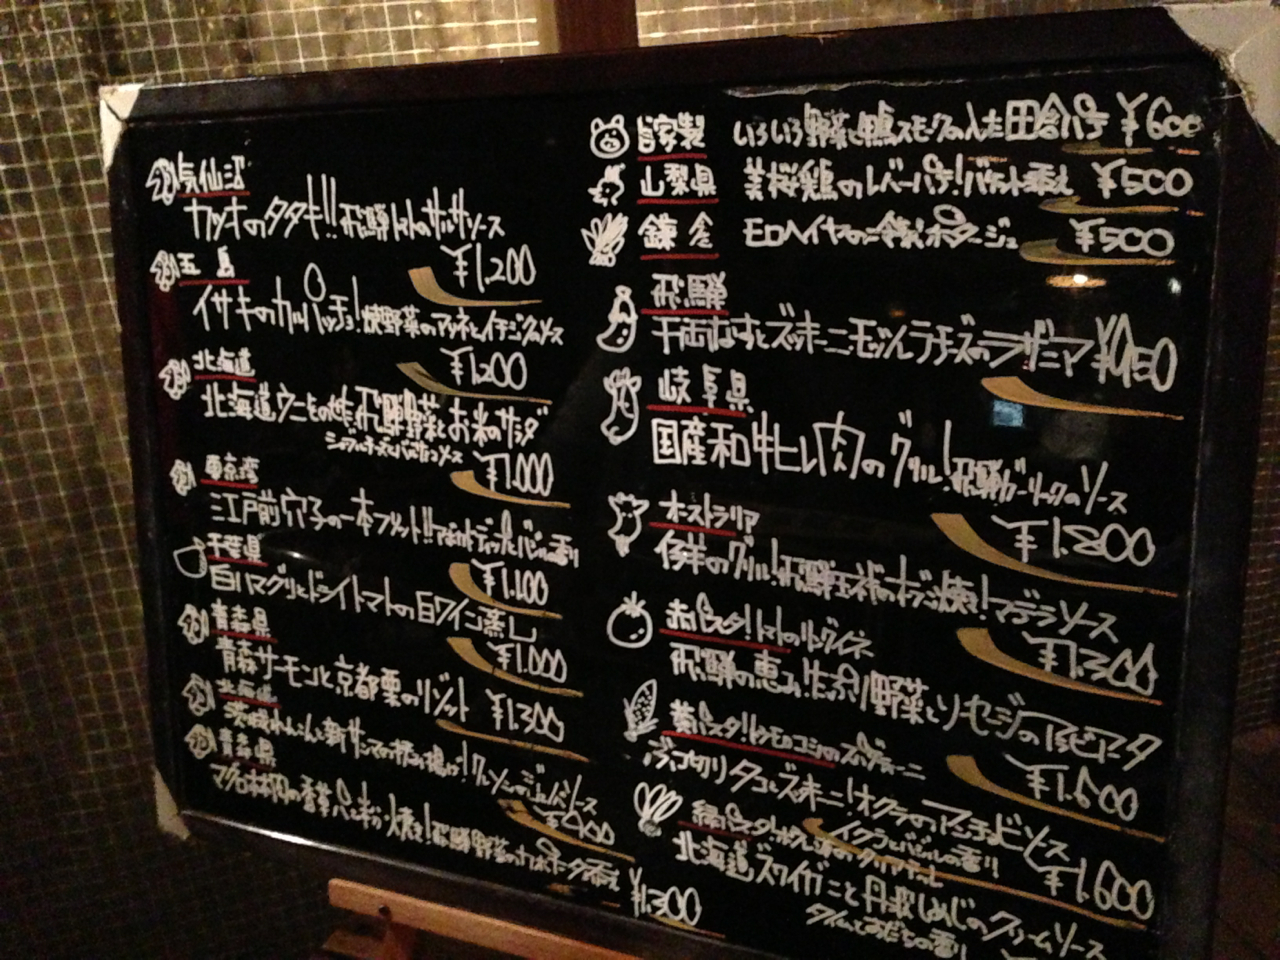 気仙沼
カツオのタタキ!!飛騨トマトのサルサソース
¥1,200
五島
イサキのカルパッチョ!焼野菜のマリネとイチジクのソース
¥1,200
北海道
北海道ウニと 飛騨野菜とお米のサラダ
¥1,000
東京湾
江戸前穴子の一本フリット!!アボカドディップとバジルの香り
¥1,100
千葉県
白ハマグリとドライトマトの白ワイン蒸し
¥1,000
青森県
青森サーモンと京都栗のリゾット ¥1,300
北海道
新サンマの 揚げ!
¥900
青森県
マグロ ホホ肉の香草パン粉焼き!飛騨野菜のカポナータ添え
¥1,300
自家製 いろいろ野菜と鴨スモークの入った田舎パテ ¥600
山梨県 美桜鶏のレバーパテ!バケット添え ¥500
鎌倉 モロヘイヤの冷製ポタージュ ¥500
飛騨
千両なすとズッキーニ モッツァレラチーズのラザニア ¥950
岐阜県
国産和牛ヒレ肉のグリル!飛騨ガーリックのソース
¥1,800
オーストラリア
仔羊のグリル!飛騨 焼き!マデラソース
¥1,300
赤パスタ!トマトのリングイネ
飛騨の恵み! 野菜とソーセージのアラビアータ
¥1,600
黄パスタ!トウモロコシのスパゲティーニ
ぶつ切りタコとズッキーニ!オクラのアンチョビソース
イクラとバジルの香り
¥1,600
緑パスタ!ホウレン草のタリアテッレ
北海道ズワイガニと丹波しめじのクリームソース